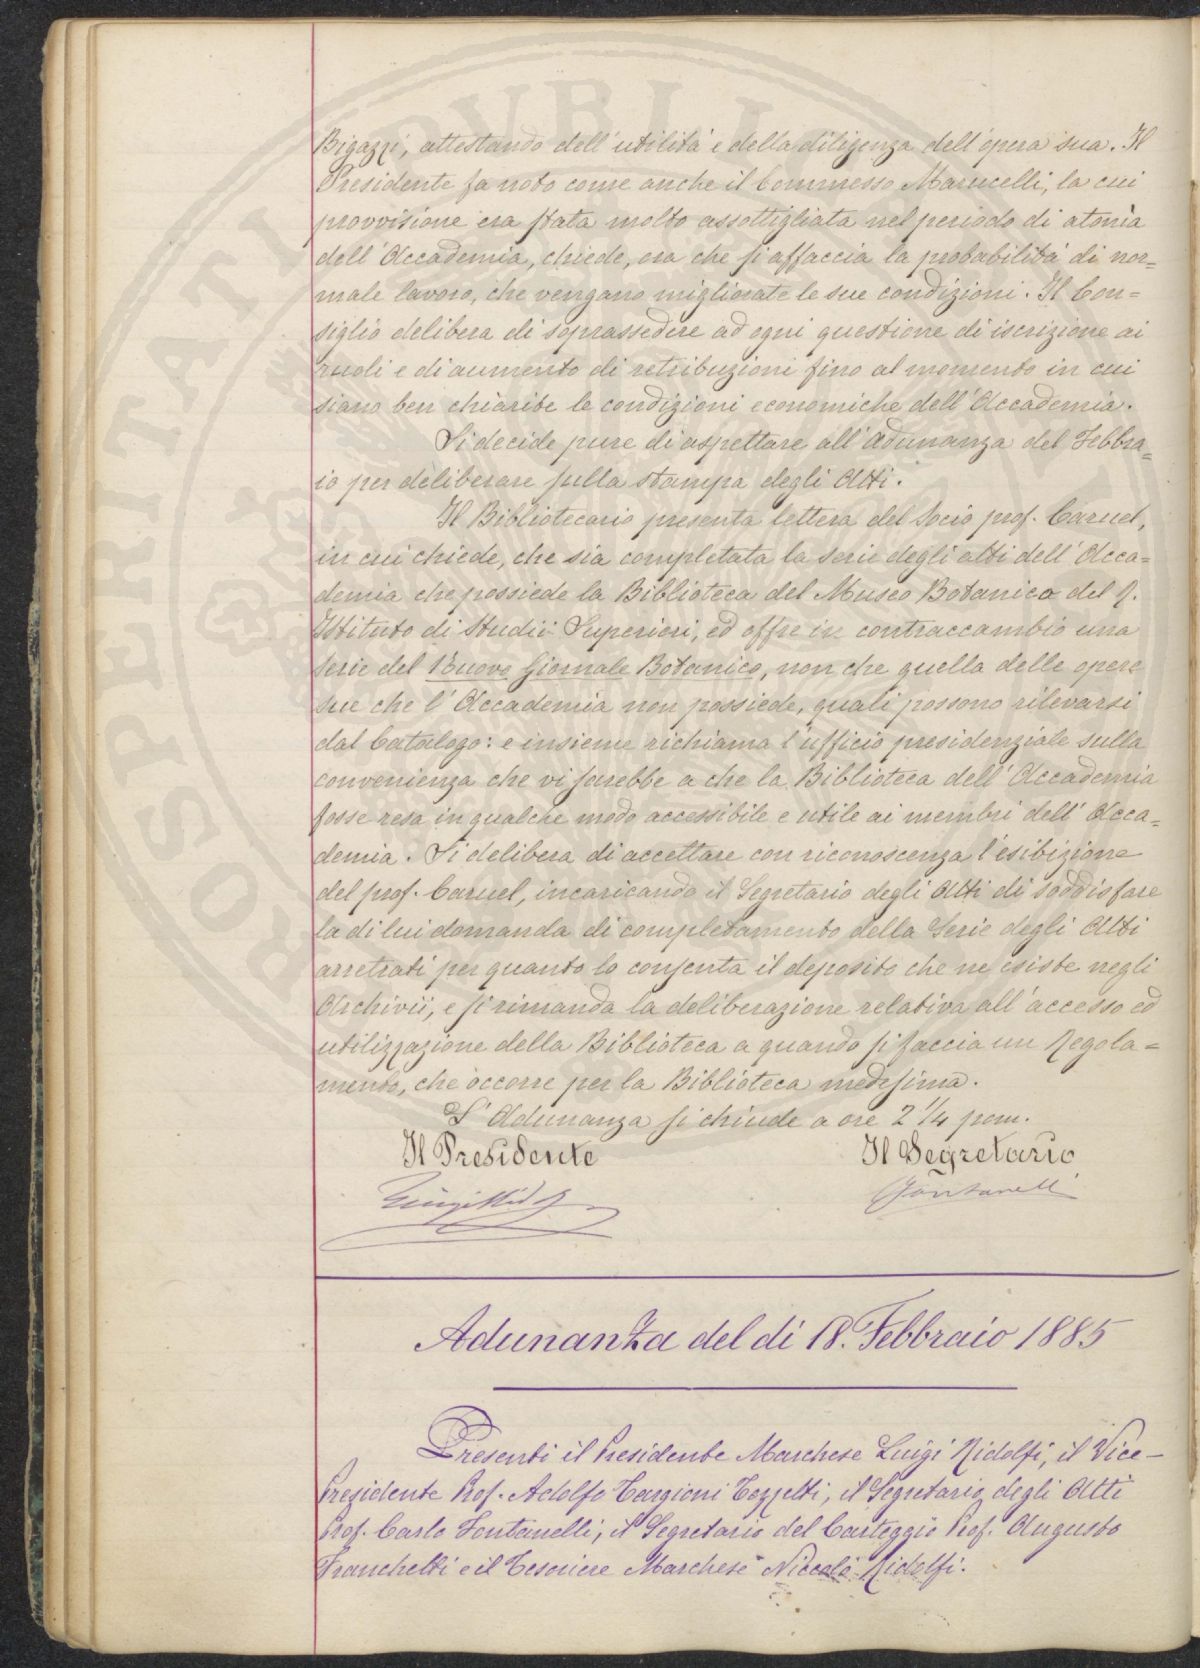 Bigazzi, attestando dell'utilità e della diligenza dell'opera sua. Il
Presidente fa noto come anche il Commesso Marucelli, la cui
provvisione era stata molto assottigliata nel periodo di atonia
dell'Accademia, chiede, ora che si affaccia la probabilità di nor=
male lavoro, che vengano migliorate le sue condizioni. Il Con=
siglio delibera di soprassedere ad ogni questione di iscrizione ai
ruoli e di aumento di retribuzioni fino al momento in cui
siano ben chiarite le condizioni economiche dell'Accademia.
Si decide pure di aspettare all'adunanza del Febbra=
io per deliberare sulla stampa degli Atti.
Il Bibliotecario presenta lettera del Socio prof. Caruel,
in cui chiede, che sia completata la serie degli atti dell'Acca=
demia che possiede la Biblioteca del Museo Botanico del R.
Istituto di Studii Superiori, ed offre in contraccambio una
serie del Nuovo Giornale Botanico, non che quella delle opere
sue che l'Accademia non possiede, quali possono rilevarsi
dal Catalogo: e insieme richiama l'ufficio presidenziale sulla
convenienza che vi sarebbe a che la Biblioteca dell'Accademia
fosse resa in qualche modo accessibile e utile ai membri dell'Acca=
demia. Si delibera di accettare con riconoscenza l'esibizione
del prof. Caruel, incaricando il Segretario degli Atti di soddisfare
la di lui domanda di completamento della Serie degli Atti
arretrati per quanto lo consenta il deposito che ne esiste negli
Archivii, e si rimanda la deliberazione relativa all'accesso ed
utilizzazione della Biblioteca a quando si faccia un Regola=
mento, che occorre per la Biblioteca medesima.
L'Adunanza si chiude a ore 2 1/4 pom.
Il Presidente Il Segretario
Luigi Ridolfi Fontanelli
Adunanza del dì 18. Febbraio 1885
Presenti il Presidente Marchese Luigi Ridolfi, il Vice-
Presidente Prof. Adolfo Targioni Tozzetti, il Segretario degli Atti
Prof. Carlo Fontanelli, il Segretario del Carteggio Prof. Augusto
Franchetti e il Tesoriere Marchese Niccolò Ridolfi.
PROSPERITATI PUBLI